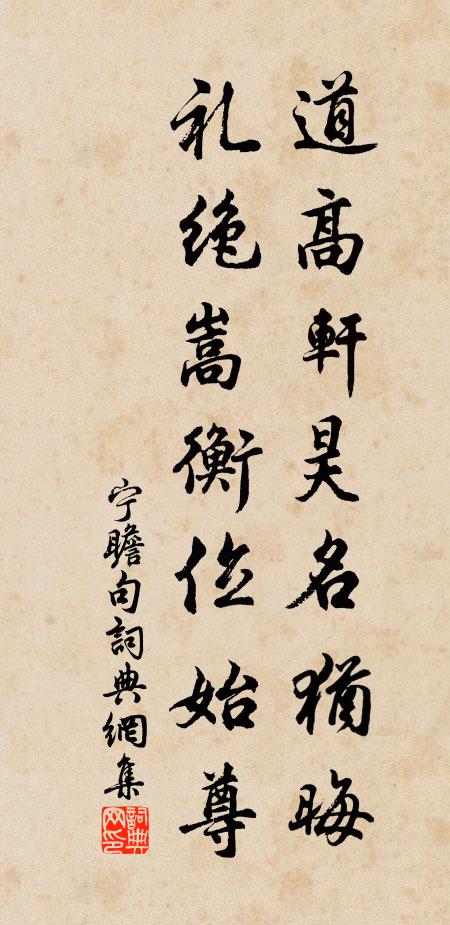 道高軒昊名猶晦
礼绝嵩衡位始尊
宁瞻句詞典網集
詞典网印